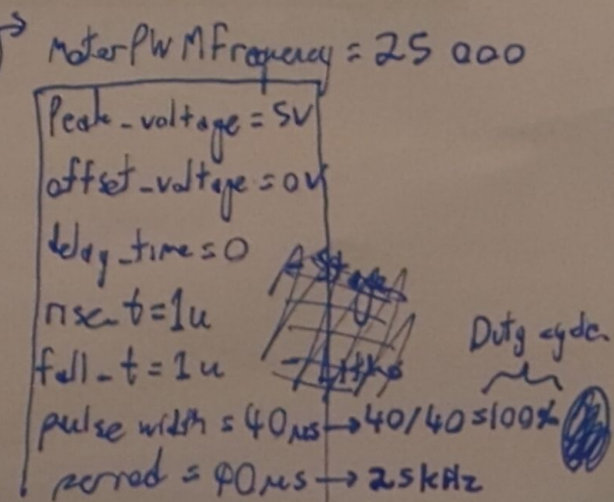 → MotorPWMFrequency = 25 000
Peak_voltage = 5V
offset_voltage = 0V
delay_time = 0
rise_t = 1u
fall_t = 1u
Duty cycle
pulse width = 40µs → 40/40 = 100%
period = 40µs → 25kHz